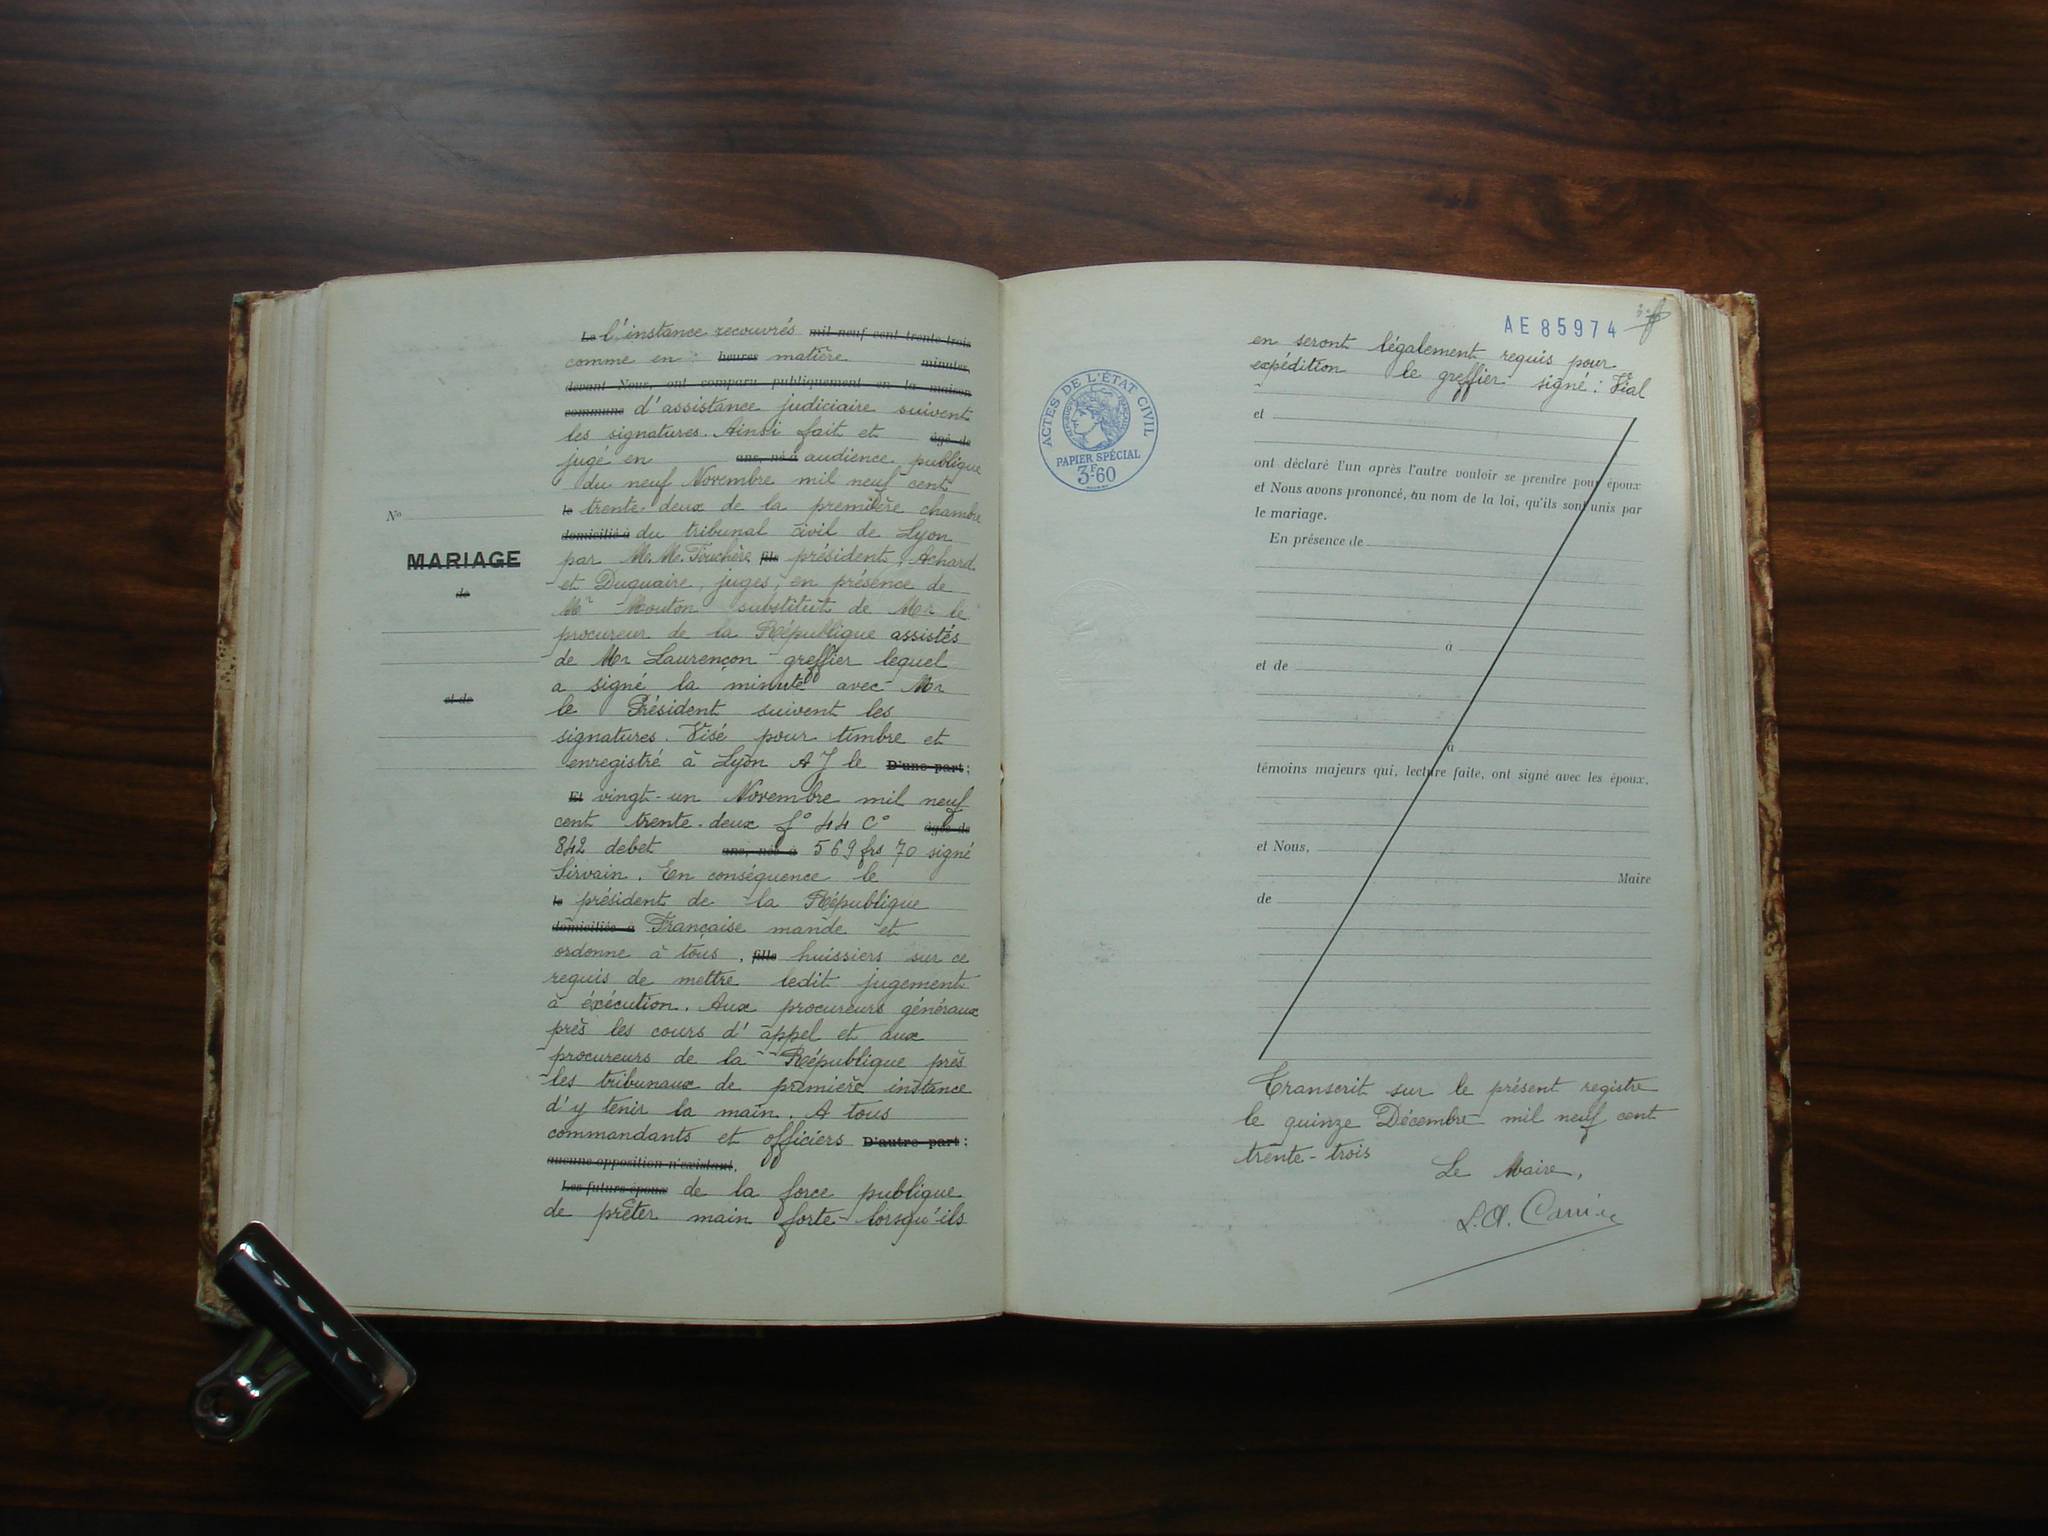 Le l'instance recouvrés mil neuf cent trente trois
comme en : heures matière minutes,
devant Nous, ont comparu publiquement en la maison
commune d'assistance judiciaire suivent
les signatures. Ainsi fait et âgé de
jugé en ans, né à audience publique
du neuf Novembre mil neuf cent
le trente deux de la première chambre
domicilié à du tribunal civil de Lyon
par M.M. Fouchère fils président, Achard
et Duguaire, juges, en présence de
Mr Mouton substitut de Mr le
procureur de la République assistés
de Mr Laurençon greffier lequel
a signé la minute avec Mr
le Président suivent les
signatures. Visé pour timbre et
enregistré à Lyon A J le D'une part;
Et vingt-un Novembre mil neuf
cent trente-deux f° 44 C° âgée de
842 debet ans, née à 569 frs 70 signé
Sirvain. En conséquence le
le président de la République
domiciliée à Française mande et
ordonne à tous, fille huissiers sur ce
requis de mettre ledit jugement
à éxécution. Aux procureurs généraux
près les cours d'appel et aux
procureurs de la République près
les tribunaux de première instance
d'y tenir la main. A tous
commandants et officiers D'autre part;
aucune opposition n'existant.
Les futurs époux de la force publique
de prêter main forte lorsqu'ils
No
MARIAGE
de
et de
AE 85974
en seront légalement requis pour
expédition le greffier signé: Vial
ACTES DE L'ÉTAT CIVIL
RÉPUBLIQUE FRANÇAISE
PAPIER SPÉCIAL
3F60
et
ont déclaré l'un après l'autre vouloir se prendre pour époux
et Nous avons prononcé, au nom de la loi, qu'ils sont unis par
le mariage.
En présence de
à
et de
à
témoins majeurs qui, lecture faite, ont signé avec les époux.
et Nous,
Maire
de
Transcrit sur le présent registre
le quinze Décembre mil neuf cent
trente-trois
Le Maire,